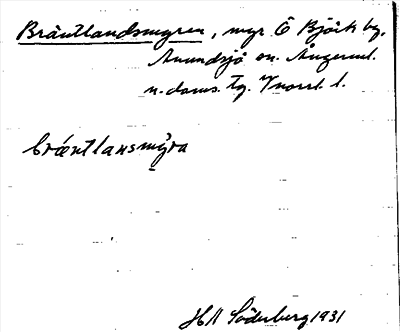 Bräntlandsmyren, myr Ö Björk by,
Anundsjö sn. Ångerml.
n. doms. tg. Vnorrl. l.
bräntlansmyra
HN Söderberg 1931